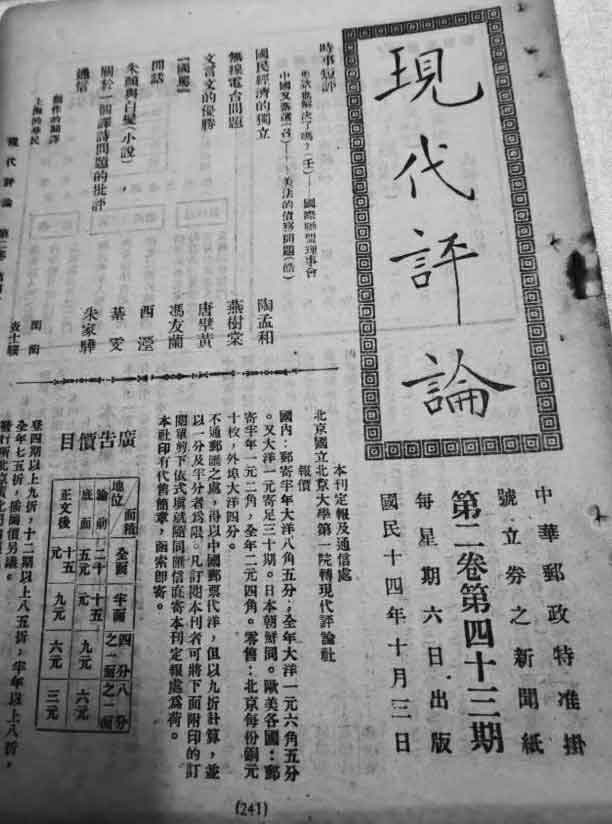 現代評論
中華郵政特准掛
號立券之新聞紙
第二卷第四十三期
每星期六日出版
國民十四年十月三日
時事短評
國際聯盟理事會
美法的債務問題(皓)
國民經濟的獨立 陶孟和
無線電台問題 燕樹棠
文言文的優勝 唐擘黃
『國罵』 馮友蘭
閒話 西瀅
朱顏與白髮(小說)
關於一個譯詩問題的批評
通信 朱家驊
現代評論 第二卷
本刊定報及通信處
北京國立北京大學第一院轉現代評論社
報價
國內:郵寄半年大洋八角五分,全年大洋一元六角五分
。又大洋一元寄足三十期。日本朝鮮同。歐美各國:郵
寄半年一元二角,全年二元四角。零售:北京每份銅元
十枚,外埠大洋四分。
不通郵匯之處,得以中國郵票代洋,但以九折計算,並
以一分及半分者為限。凡訂閱本刊者可將下面附印的訂
閱單剪下依式填就隨同匯信直寄本刊定報處為荷。
本社印有代售簡章,函索即寄。
廣告價目
地位 面積 全面 半面 四分之一面 八分之一面
論前 二十元 十五元 九元 六元
底面
正文後 十五元 九元 六元 三元
登四期以上九折,十二期以上八五折,半年以上八折,
全年七五折,插圖價另議。
(241)